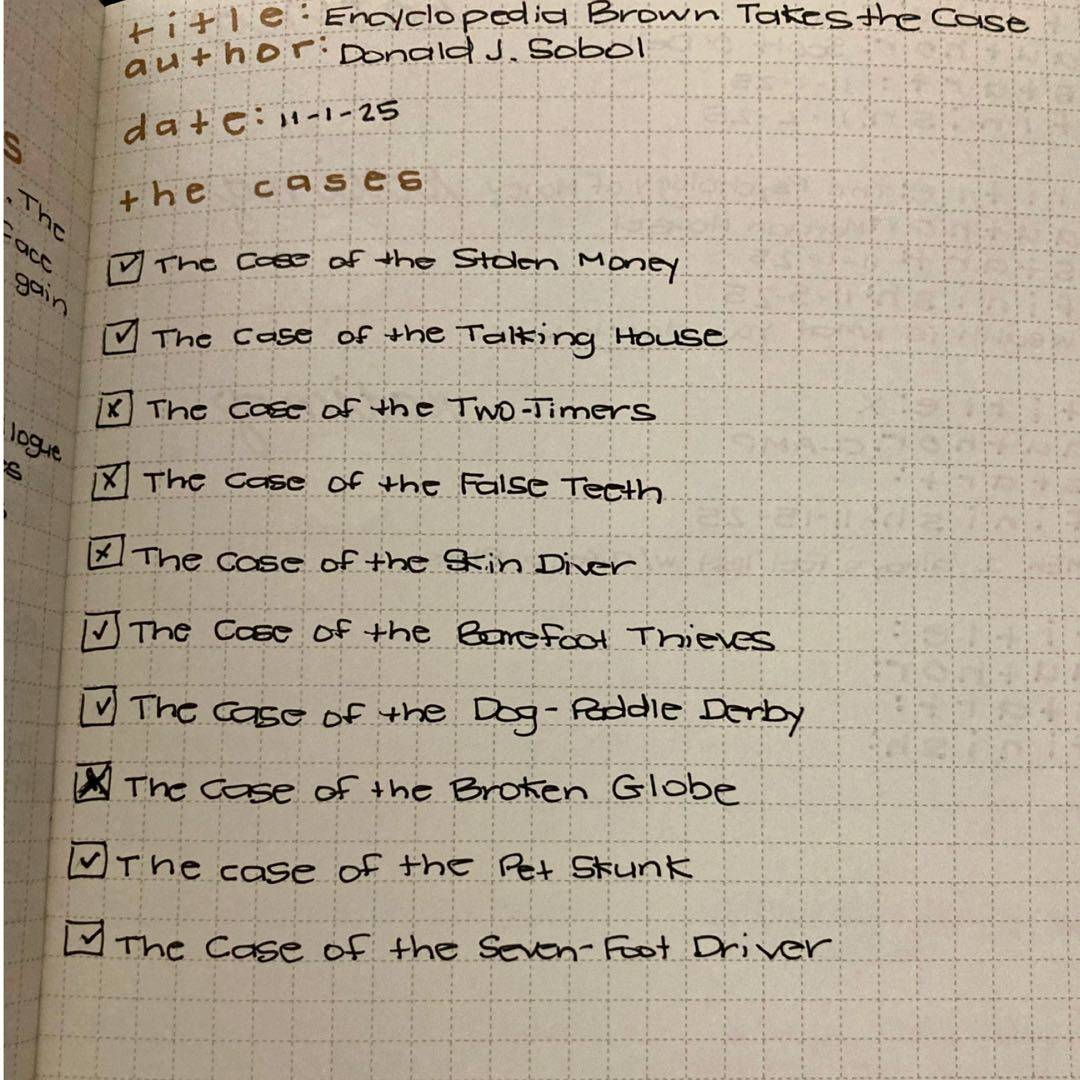 title: Encyclopedia Brown Takes the Case
author: Donald J. Sobol
date: 11-1-25
the cases
☑ The Case of the Stolen Money
☑ The Case of the Talking House
☒ The Case of the Two-Timers
☒ The Case of the False Teeth
☒ The Case of the Skin Diver
☑ The Case of the Barefoot Thieves
☑ The Case of the Dog-Paddle Derby
☒ The Case of the Broken Globe
☑ The case of the Pet Skunk
☑ The Case of the Seven-Foot Driver
s
. The
gain
logue